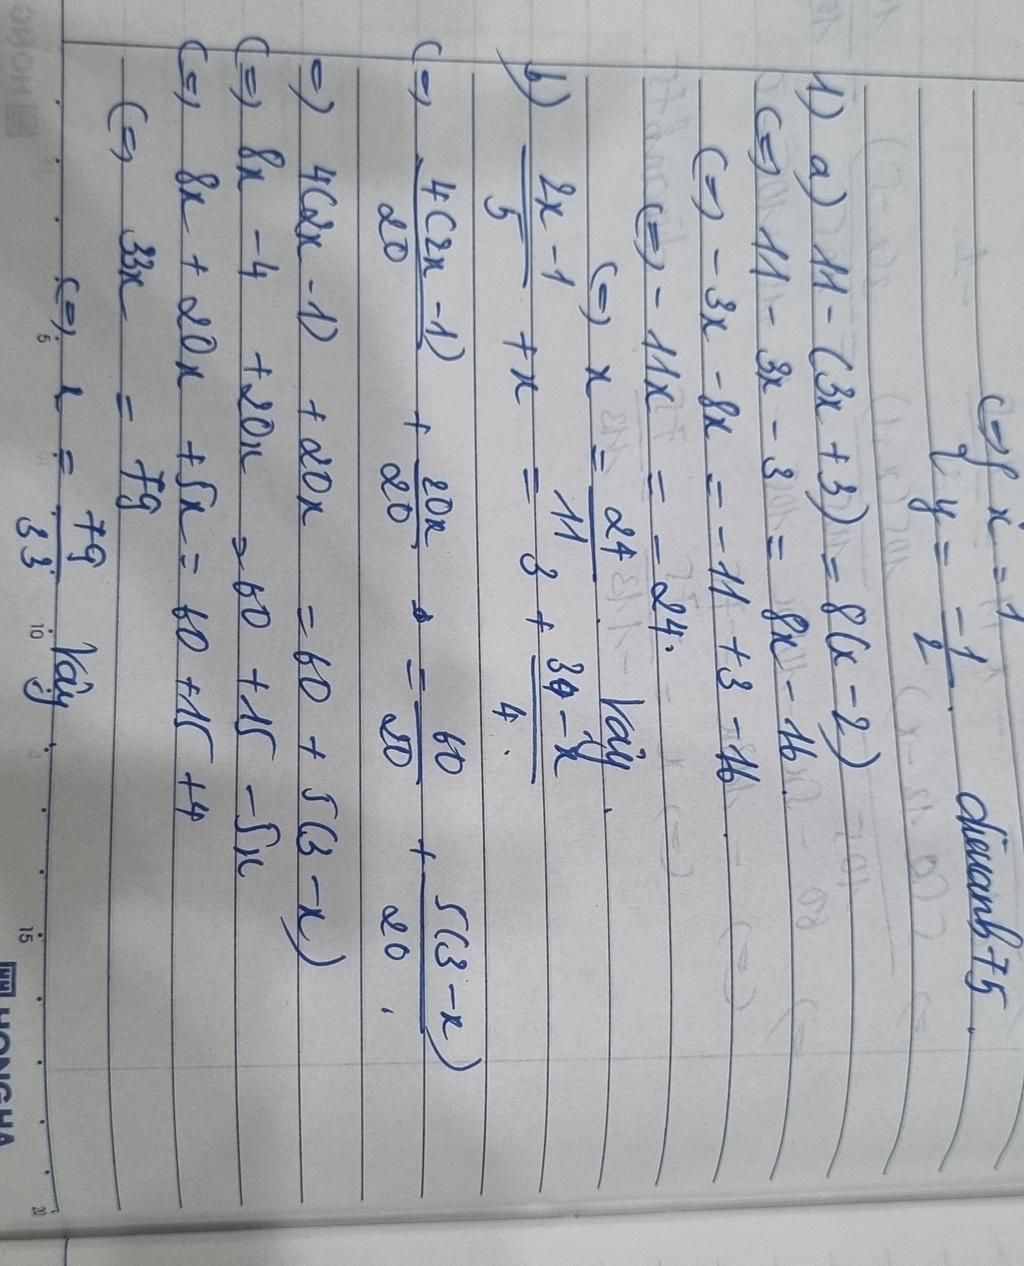 (=) { x = 1
{ y = -1/2. dieuanh75.
1) a) 11 - (3x + 3) = 8(x - 2)
(=) 11 - 3x - 3 = 8x - 16.
(=) - 3x - 8x = - 11 + 3 - 16
(=) - 11x = - 24.
(=) x = 24/11 Vậy.
b) 2x - 1/5 + x = 3 + 3 - x/4.
(=) 4(2x - 1)/20 + 20x/20 = 60/20 + 5(3 - x)/20.
=) 4(2x - 1) + 20x = 60 + 5(3 - x)
(=) 8x - 4 + 20x = 60 + 15 - 5x
(=) 8x + 20x + 5x = 60 + 15 + 4
(=) 33x = 79
(=) x = 79/33 Vậy.
5 10 15 20
HONG HA